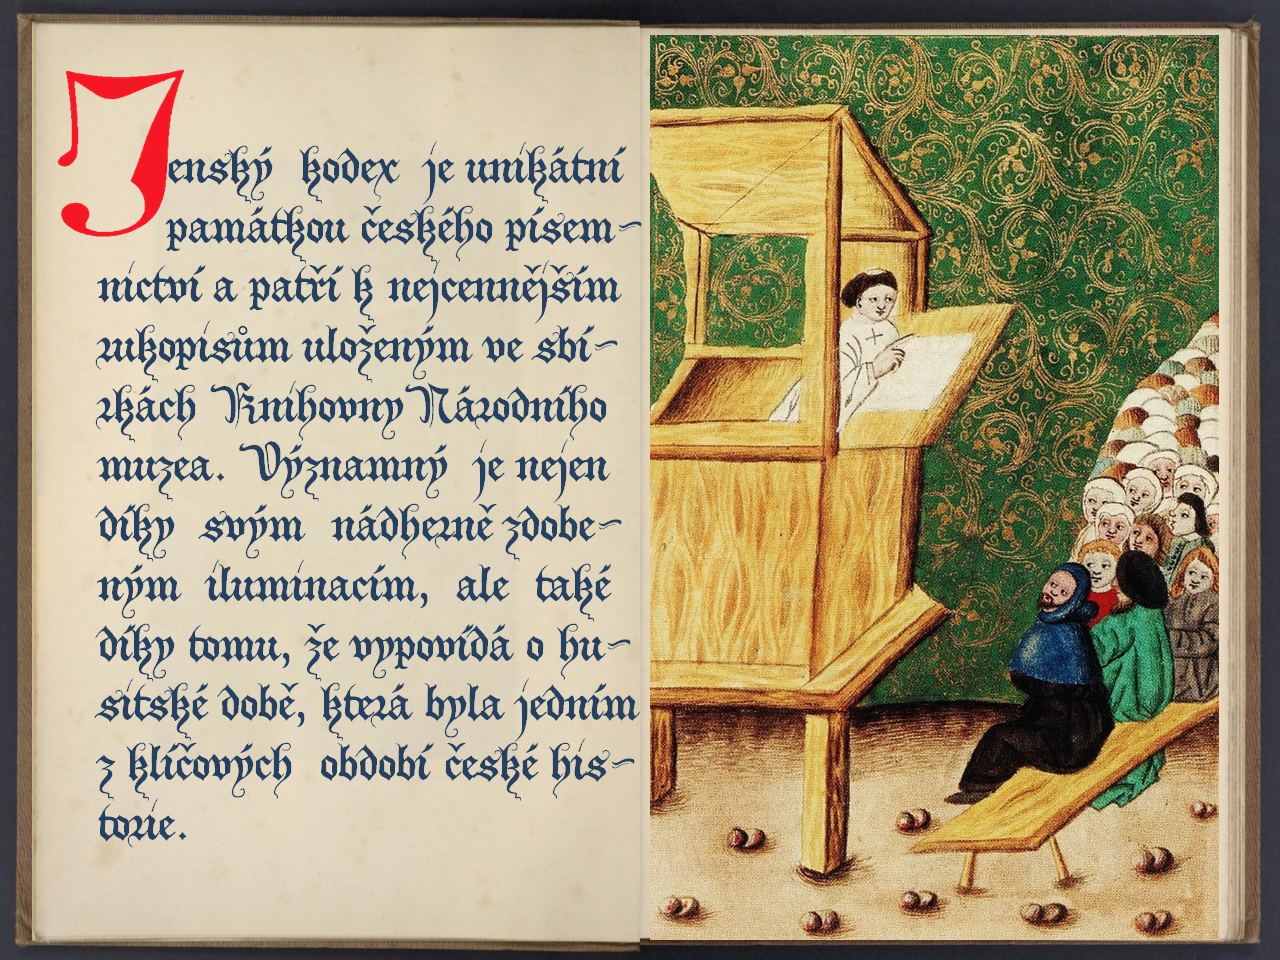 Jenský kodex je unikátní
památkou českého písem-
nictví a patří k nejcennějším
rukopisům uloženým ve sbí-
rkách Knihovny Národního
muzea. Významný je nejen
díky svým nádherně zdobe-
ným iluminacím, ale také
díky tomu, že vypovídá o hu-
sitské době, která byla jedním
z klíčových období české his-
torie.